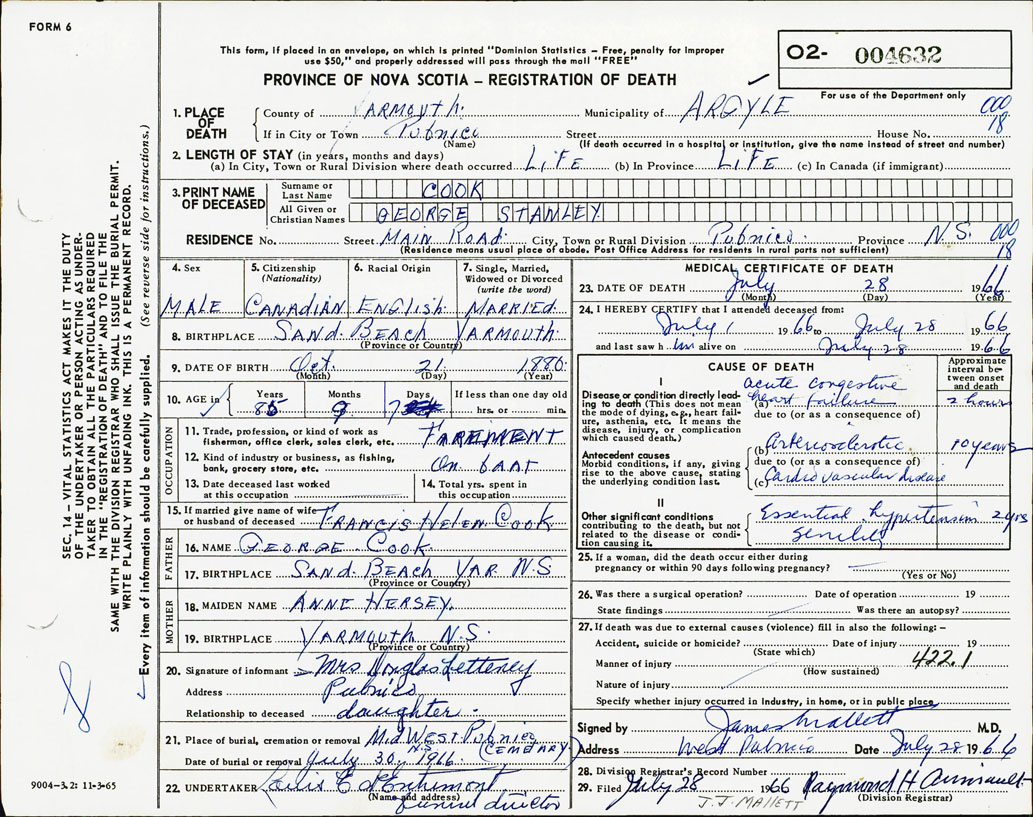 FORM 6
This form, if placed in an envelope, on which is printed "Dominion Statistics – Free, penalty for improper
use $50," and properly addressed will pass through the mail "FREE"
PROVINCE OF NOVA SCOTIA – REGISTRATION OF DEATH
02- 004632
For use of the Department only
1. PLACE OF DEATH
County of YARMOUTH. Municipality of ARGYLE 000
If in City or Town Pubnico Street House No. 18
(Name) (If death occurred in a hospital or institution, give the name instead of street and number)
2. LENGTH OF STAY (in years, months and days)
(a) In City, Town or Rural Division where death occurred LiFe (b) In Province LiFe (c) In Canada (if immigrant)
3. PRINT NAME OF DECEASED
Surname or Last Name COOK
All Given or Christian Names GEORGE STANLEY
RESIDENCE No. Street MAIN ROAD. City, Town or Rural Division Pubnico. Province N.S. 000
(Residence means usual place of abode. Post Office Address for residents in rural parts not sufficient) 18
4. Sex 5. Citizenship (Nationality) 6. Racial Origin 7. Single, Married, Widowed or Divorced (write the word)
MALE CANADIAN ENGLISH MARRIED.
8. BIRTHPLACE SAND BEACH YARMOUTH
(Province or Country)
9. DATE OF BIRTH Oct. 21 1880.
(Month) (Day) (Year)
10. AGE in Years Months Days If less than one day old
85 9 7 hrs. or min.
OCCUPATION
11. Trade, profession, or kind of work as
fisherman, office clerk, sales clerk, etc.
12. Kind of industry or business, as fishing,
bank, grocery store, etc. On boat
13. Date deceased last worked
at this occupation
14. Total yrs. spent in
this occupation
15. If married give name of wife
or husband of deceased FRANCIS HELEN COOK
FATHER
16. NAME GEORGE COOK
17. BIRTHPLACE SAND BEACH YAR N.S
(Province or Country)
MOTHER
18. MAIDEN NAME ANNE HERSEY.
19. BIRTHPLACE YARMOUTH N.S.
(Province or Country)
20. Signature of informant Mrs Douglas Letteney
Address Pubnico
Relationship to deceased daughter.
21. Place of burial, cremation or removal Mid WEST Pubnico N.S CEMETARY
Date of burial or removal July 30, 1966.
22. UNDERTAKER E d'Entremont
(Name and address) funeral director
MEDICAL CERTIFICATE OF DEATH
23. DATE OF DEATH July 28 1966
(Month) (Day) (Year)
24. I HEREBY CERTIFY that I attended deceased from:
July 1 1966 to July 28 1966
and last saw him alive on July 28 1966
CAUSE OF DEATH
Approximate interval between onset and death
I
Disease or condition directly leading to death (This does not mean the mode of dying, e.g., heart failure, asthenia, etc. It means the disease, injury, or complication which caused death.)
acute congestive
(a) heart failure 2 hours
due to (or as a consequence of)
Antecedent causes
Morbid conditions, if any, giving rise to the above cause, stating the underlying condition last.
(b) Arteriosclerotic 10 years
due to (or as a consequence of)
(c) Cardiovascular disease
II
Other significant conditions
contributing to the death, but not related to the disease or condition causing it.
Essential hypertension 2 yrs
Senility
25. If a woman, did the death occur either during
pregnancy or within 90 days following pregnancy?
(Yes or No)
26. Was there a surgical operation? Date of operation 19
State findings Was there an autopsy?
27. If death was due to external causes (violence) fill in also the following: –
Accident, suicide or homicide? Date of injury 19
(State which) 422.1
Manner of injury
(How sustained)
Nature of injury
Specify whether injury occurred in industry, in home, or in public place
Signed by James Mallett M.D.
Address West Pubnico Date July 28 1966
28. Division Registrar's Record Number
29. Filed July 28 1966 Raymond H Amirault
J.J. MALLETT (Division Registrar)
SEC. 14 – VITAL STATISTICS ACT MAKES IT THE DUTY
OF THE UNDERTAKER OR PERSON ACTING AS UNDER-
TAKER TO OBTAIN ALL THE PARTICULARS REQUIRED
IN THE "REGISTRATION OF DEATH" AND TO FILE THE
SAME WITH THE DIVISION REGISTRAR WHO SHALL ISSUE THE BURIAL PERMIT.
WRITE PLAINLY WITH UNFADING INK. THIS IS A PERMANENT RECORD.
Every item of information should be carefully supplied. (See reverse side for instructions.)
9004-3.2: 11-3-65